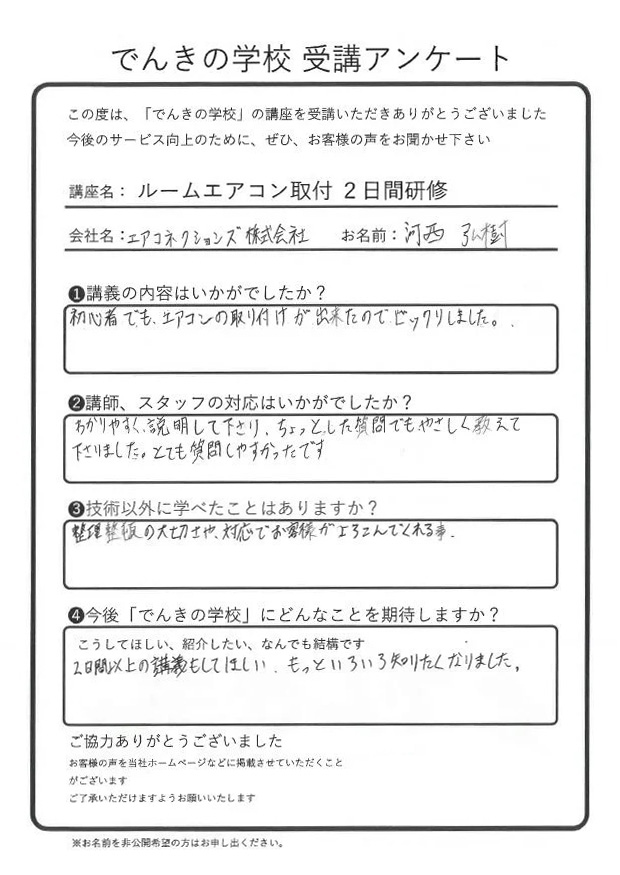 でんきの学校 受講アンケート
この度は、「でんきの学校」の講座を受講いただきありがとうございました
今後のサービス向上のために、ぜひ、お客様の声をお聞かせ下さい
講座名： ルームエアコン取付 ２日間研修
会社名：エアコネクションズ株式会社 お名前：河西 弘樹
❶講義の内容はいかがでしたか？
初心者でも、エアコンの取り付けが出来たのでビックリしました。
❷講師、スタッフの対応はいかがでしたか？
わかりやすく、説明して下さり、ちょっとした質問でもやさしく教えて
下さりました。とても質問しやすかったです
❸技術以外に学べたことはありますか？
整理整頓の大切さや、対応でお客様がよろこんでくれる事.
❹今後「でんきの学校」にどんなことを期待しますか？
こうしてほしい、紹介したい、なんでも結構です
2日間以上の講義もしてほしい、もっといろいろ知りたくなりました。
ご協力ありがとうございました
お客様の声を当社ホームページなどに掲載させていただくこと
がございます
ご了承いただけますようお願いいたします
※お名前を非公開希望の方はお申し出ください。